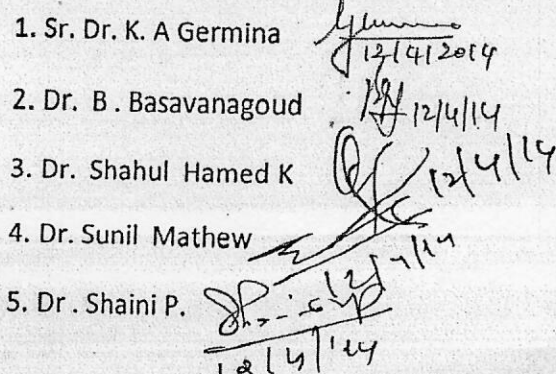 1. Sr. Dr. K. A Germina
12/4/2014
2. Dr. B . Basavanagoud
12/4/14
3. Dr. Shahul Hamed K
12/4/14
4. Dr. Sunil Mathew
12/4/14
5. Dr . Shaini P.
12/4/14